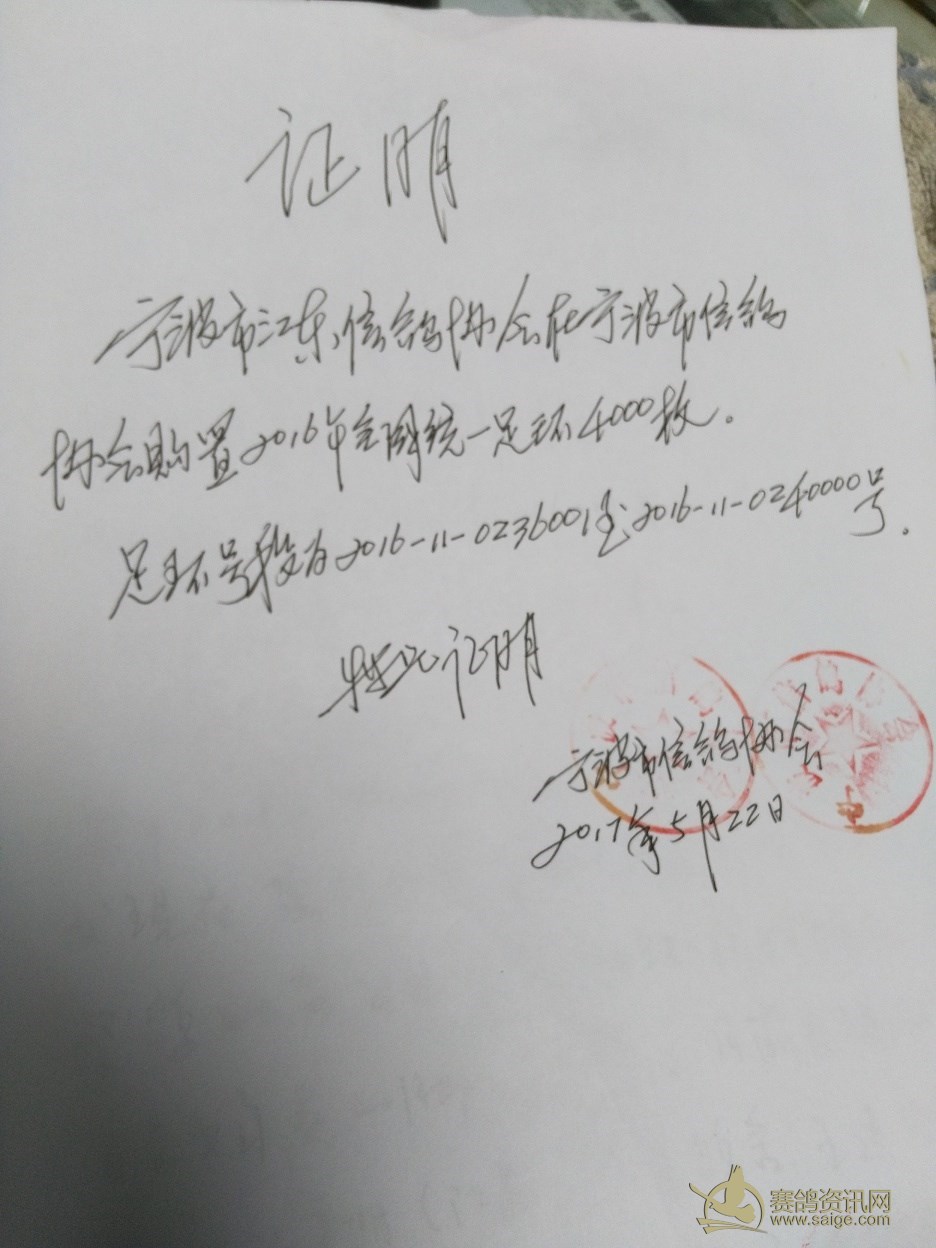 证明
宁波市江东信鸽协会在宁波市信鸽
协会购置2016年全国统一足环4000枚.
足环号段为2016-11-0236001至2016-11-0240000号.
特此证明
宁波市信鸽协会
2017年5月22日
赛鸽资讯网
www.saige.com